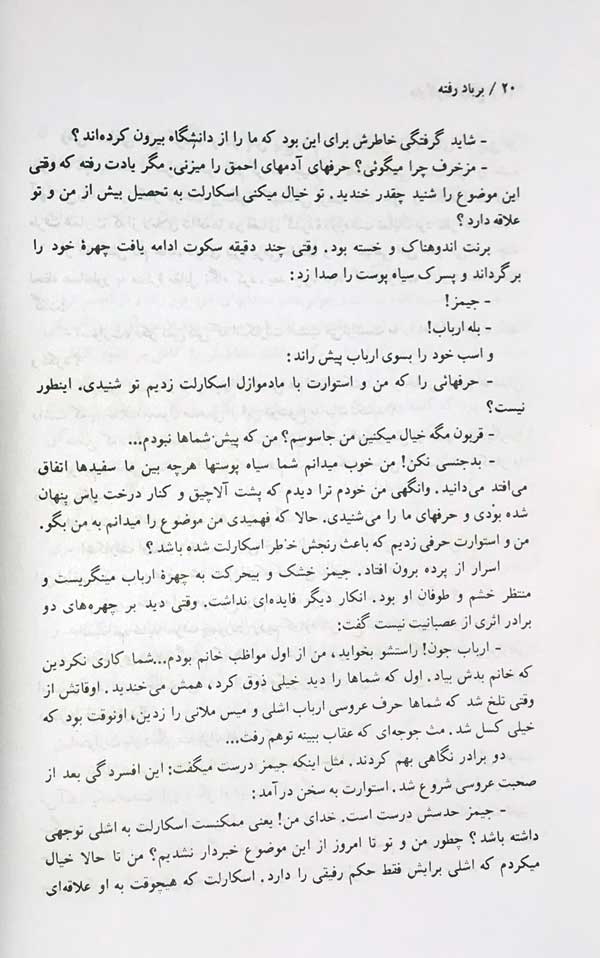 ۲۰ / برباد رفته
- شاید گرفتگی خاطرش برای این بود که ما را از دانشگاه بیرون کرده‌اند؟
- مزخرف چرا میگوئی؟ حرفهای آدمهای احمق را میزنی. مگر یادت رفته که وقتی
این موضوع را شنید چقدر خندید. تو خیال میکنی اسکارلت به تحصیل بیش از من و تو
علاقه دارد؟
برنت اندوهناک و خسته بود. وقتی چند دقیقه سکوت ادامه یافت چهرهٔ خود را
برگرداند و پسرک سیاه پوست را صدا زد:
- جیمز!
- بله ارباب!
و اسب خود را بسوی ارباب پیش راند:
- حرفهائی را که من و استوارت با مادموازل اسکارلت زدیم تو شنیدی. اینطور
نیست؟
- قربون مگه خیال میکنین من جاسوسم؟ من که پیش شماها نبودم...
- بدجنسی نکن! من خوب میدانم شما سیاه پوستها هرچه بین ما سفیدها اتفاق
می‌افتد می‌دانید. وانگهی من خودم ترا دیدم که پشت آلاچیق و کنار درخت یاس پنهان
شده بودی و حرفهای ما را می‌شنیدی. حالا که فهمیدی من موضوع را میدانم به من بگو.
من و استوارت حرفی زدیم که باعث رنجش خاطر اسکارلت شده باشد؟
اسرار از پرده برون افتاد. جیمز خشک و بیحرکت به چهرهٔ ارباب مینگریست و
منتظر خشم و طوفان او بود. انکار دیگر فایده‌ای نداشت. وقتی دید بر چهره‌های دو
برادر اثری از عصبانیت نیست گفت:
- ارباب جون! راستشو بخواید، من از اول مواظب خانم بودم...شما کاری نکردین
که خانم بدش بیاد. اول که شماها را دید خیلی ذوق کرد، همش می‌خندید. اوقاتش از
وقتی تلخ شد که شماها حرف عروسی ارباب اشلی و میس ملانی را زدین، اونوقت بود که
خیلی کسل شد. مث جوجه‌ای که عقاب ببینه توهم رفت...
دو برادر نگاهی بهم کردند. مثل اینکه جیمز درست میگفت: این افسردگی بعد از
صحبت عروسی شروع شد. استوارت به سخن درآمد:
- جیمز حدسش درست است. خدای من! یعنی ممکنست اسکارلت به اشلی توجهی
داشته باشد؟ چطور من و تو تا امروز از این موضوع خبردار نشدیم؟ من تا حالا خیال
میکردم که اشلی برایش فقط حکم رفیقی را دارد. اسکارلت که هیچوقت به او علاقه‌ای